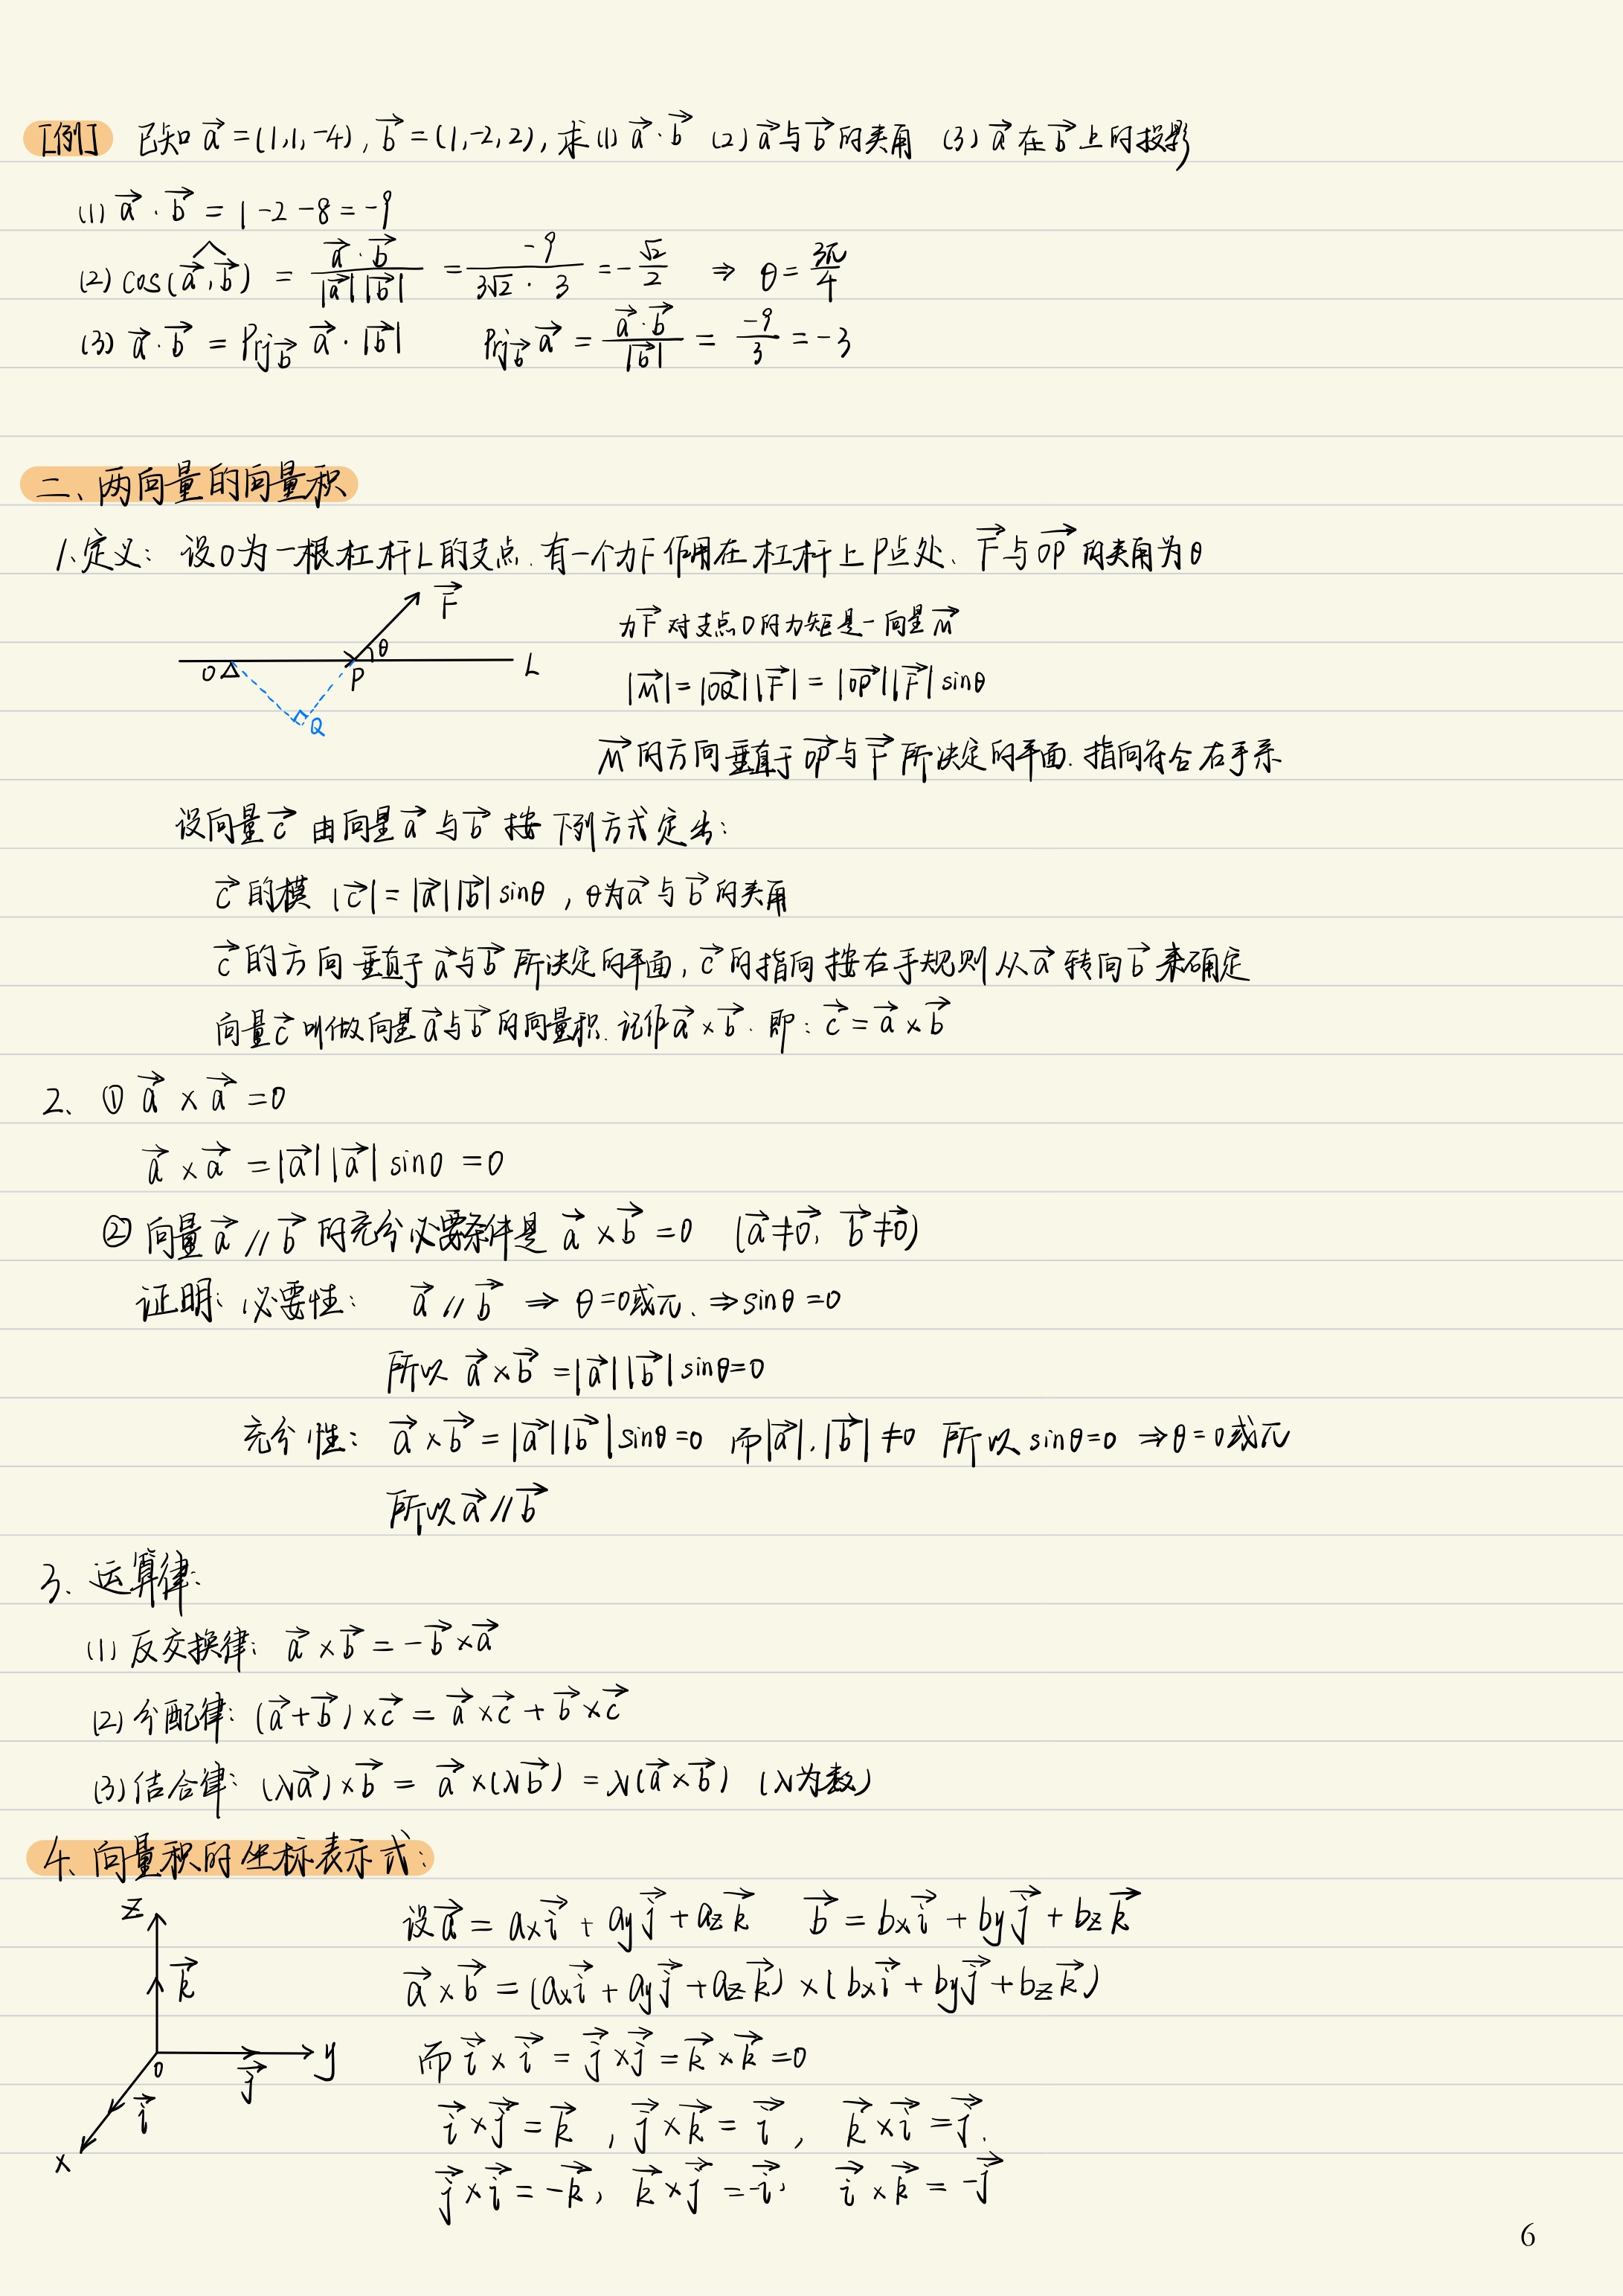 [例] 已知 $\vec{a}=(1,1,-4)$, $\vec{b}=(1,-2,2)$, 求 (1) $\vec{a}\cdot\vec{b}$ (2) $\vec{a}$与$\vec{b}$的夹角 (3) $\vec{a}$在$\vec{b}$上的投影
(1) $\vec{a}\cdot\vec{b}=1-2-8=-9$
(2) $\cos(\widehat{\vec{a},\vec{b}})=\frac{\vec{a}\cdot\vec{b}}{|\vec{a}||\vec{b}|}=\frac{-9}{3\sqrt{2}\cdot 3}=-\frac{\sqrt{2}}{2}$ $\Rightarrow$ $\theta=\frac{3\pi}{4}$
(3) $\vec{a}\cdot\vec{b}=Prj_{\vec{b}}\vec{a}\cdot|\vec{b}|$ $Prj_{\vec{b}}\vec{a}=\frac{\vec{a}\cdot\vec{b}}{|\vec{b}|}=\frac{-9}{3}=-3$
二、两向量的向量积
1、定义: 设O为一根杠杆L的支点. 有一个力F作用在杠杆上P点处、$\vec{F}$与$\vec{OP}$的夹角为θ
$\vec{F}$
θ
O P L
Q
力$\vec{F}$对支点O的力矩是一向量$\vec{M}$
$|\vec{M}|=|\vec{OQ}||\vec{F}|=|\vec{OP}||\vec{F}|\sin\theta$
$\vec{M}$的方向垂直于$\vec{OP}$与$\vec{F}$所决定的平面. 指向符合右手系
设向量$\vec{c}$由向量$\vec{a}$与$\vec{b}$按下列方式定出:
$\vec{c}$的模 $|\vec{c}|=|\vec{a}||\vec{b}|\sin\theta$, θ为$\vec{a}$与$\vec{b}$的夹角
$\vec{c}$的方向垂直于$\vec{a}$与$\vec{b}$所决定的平面, $\vec{c}$的指向按右手规则从$\vec{a}$转向$\vec{b}$来确定
向量$\vec{c}$叫做向量$\vec{a}$与$\vec{b}$的向量积. 记作$\vec{a}\times\vec{b}$. 即: $\vec{c}=\vec{a}\times\vec{b}$
2、① $\vec{a}\times\vec{a}=0$
$\vec{a}\times\vec{a}=|\vec{a}||\vec{a}|\sin 0=0$
② 向量$\vec{a}//\vec{b}$的充分必要条件是$\vec{a}\times\vec{b}=0$ ($\vec{a}\neq\vec{0}$, $\vec{b}\neq\vec{0}$)
证明: 必要性: $\vec{a}//\vec{b}$ $\Rightarrow$ θ=0或π. $\Rightarrow \sin\theta=0$
所以 $\vec{a}\times\vec{b}=|\vec{a}||\vec{b}|\sin\theta=0$
充分性: $\vec{a}\times\vec{b}=|\vec{a}||\vec{b}|\sin\theta=0$ 而$|\vec{a}|,|\vec{b}|\neq 0$ 所以 $\sin\theta=0$ $\Rightarrow$θ=0或π
所以$\vec{a}//\vec{b}$
3、运算律:
(1) 反交换律: $\vec{a}\times\vec{b}=-\vec{b}\times\vec{a}$
(2) 分配律: $(\vec{a}+\vec{b})\times\vec{c}=\vec{a}\times\vec{c}+\vec{b}\times\vec{c}$
(3) 结合律: $(\lambda\vec{a})\times\vec{b}=\vec{a}\times(\lambda\vec{b})=\lambda(\vec{a}\times\vec{b})$ (λ为数)
4、向量积的坐标表示式:
z
$\vec{k}$
O $\vec{j}$ y
$\vec{i}$
x
设$\vec{a}=a_x\vec{i}+a_y\vec{j}+a_z\vec{k}$ $\vec{b}=b_x\vec{i}+b_y\vec{j}+b_z\vec{k}$
$\vec{a}\times\vec{b}=(a_x\vec{i}+a_y\vec{j}+a_z\vec{k})\times(b_x\vec{i}+b_y\vec{j}+b_z\vec{k})$
而$\vec{i}\times\vec{i}=\vec{j}\times\vec{j}=\vec{k}\times\vec{k}=0$
$\vec{i}\times\vec{j}=\vec{k}$, $\vec{j}\times\vec{k}=\vec{i}$, $\vec{k}\times\vec{i}=\vec{j}$.
$\vec{j}\times\vec{i}=-\vec{k}$, $\vec{k}\times\vec{j}=-\vec{i}$, $\vec{i}\times\vec{k}=-\vec{j}$
6